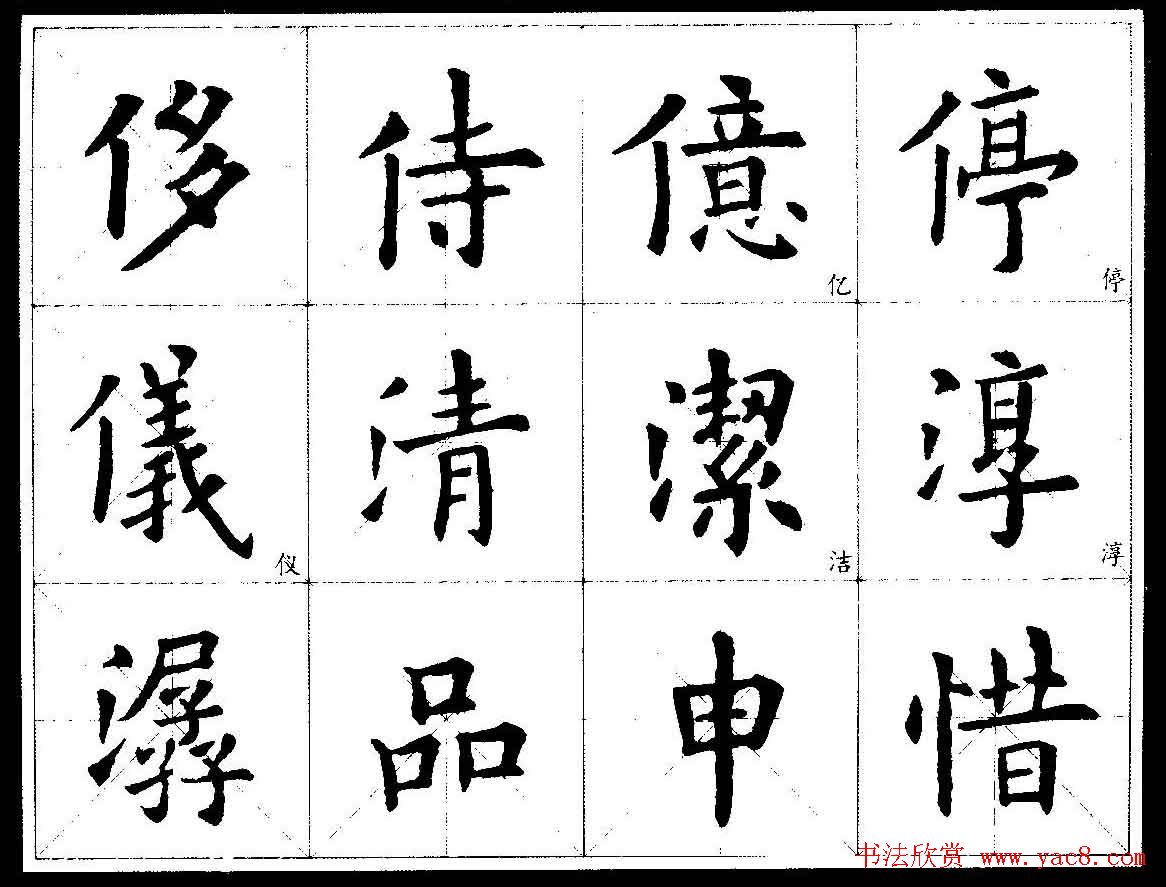 侈 侍 億 停
亿 停
儀 清 潔 淳
仪 洁 淳
潺 品 申 惜
书法欣赏 www.yac8.com